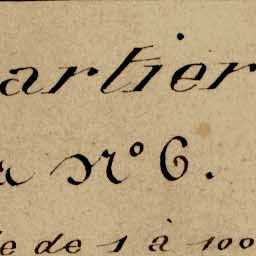 artier
a N° 6.
le de 1 à 100